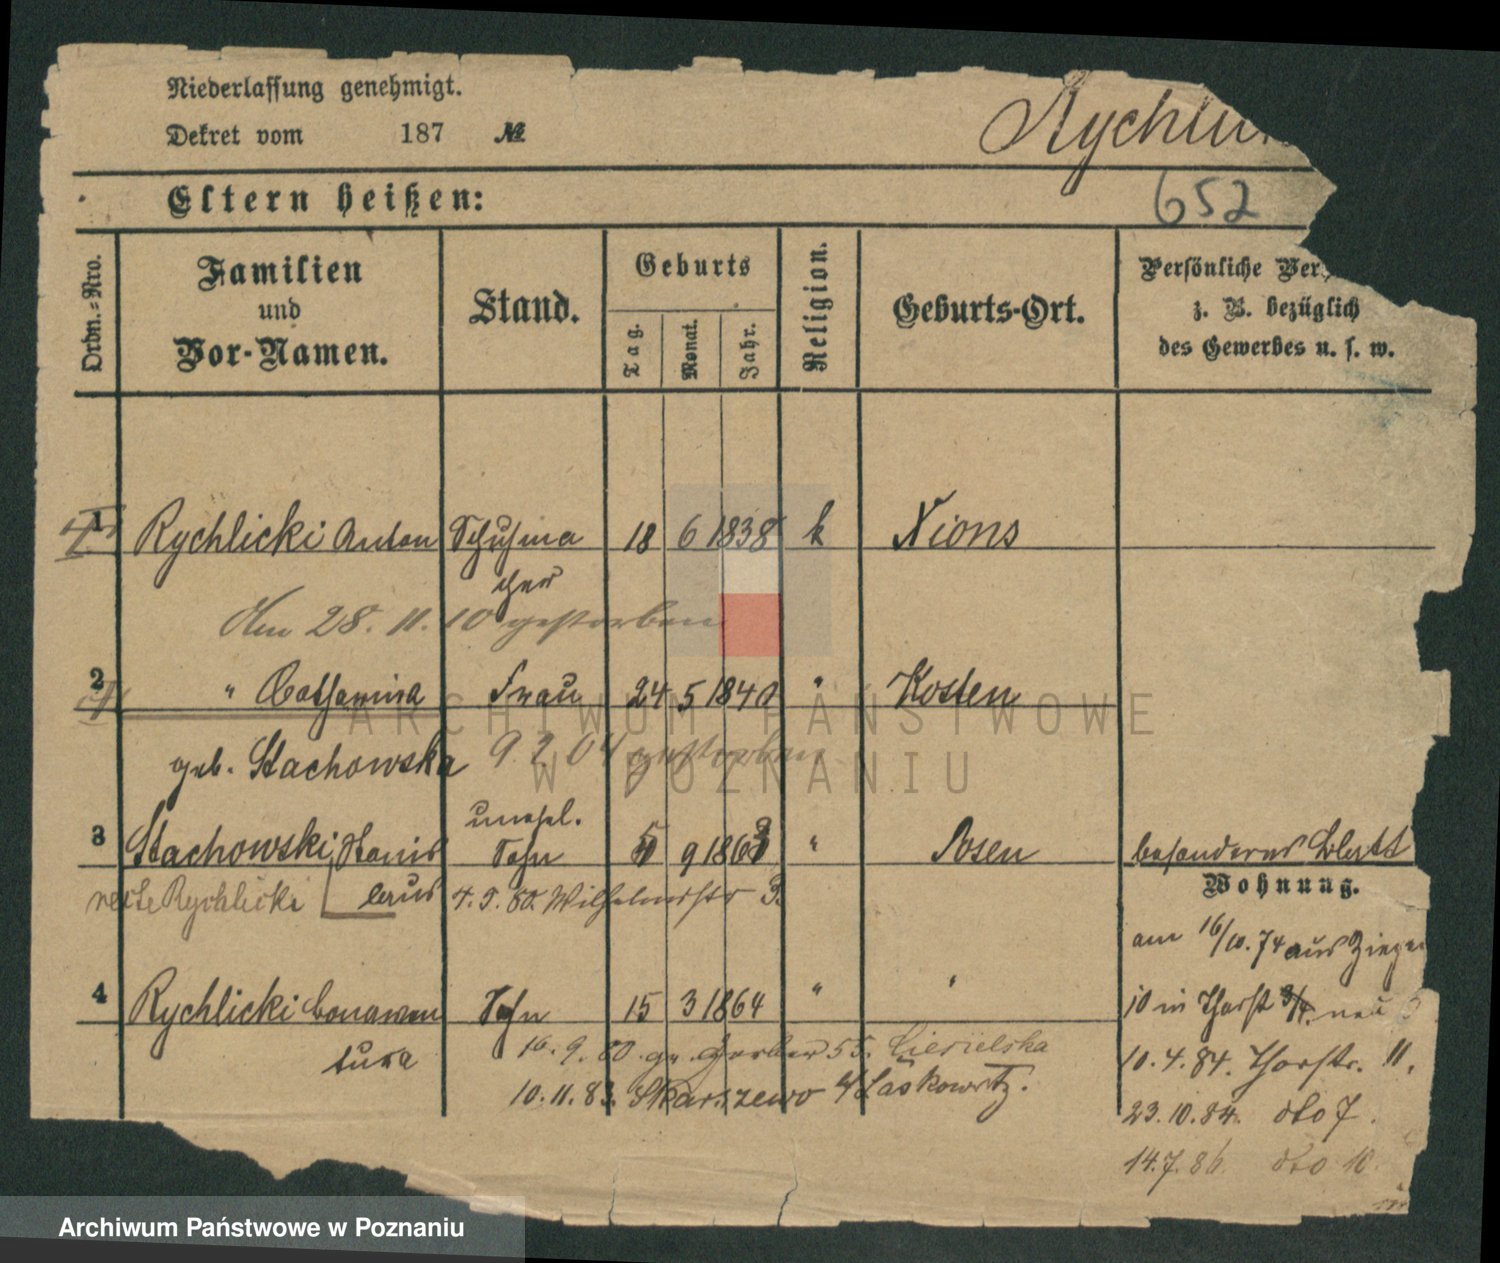 Niederlassung genehmigt.
Dekret vom 187 №
Rychli
652
Eltern heißen:
Ordn.=Nro.
Familien
und
Vor-Namen.
Stand.
Geburts
Tag.
Monat.
Jahr.
Religion.
Geburts-Ort.
Persönliche Ver
z. B. bezüglich
des Gewerbes u. s. w.
1 Rychlicki Anton Schuhma 18 6 1838 k Xions
cher
Am 28. 11. 10 gestorben
2 " Catharina Frau 24 5 1840 " Kosten
geb. Stachowska 9. 2. 04 gestorben
unehel.
3 Stachowski, Stanis Sohn 5 9 1863 " Posen besonderes Blatt
recte Rychlicki laus 4. 9. 80. Wilhelmstr 3.
Wohnung.
am 16/10. 74 aus Ziegen
4 Rychlicki Bonaven Sohn 15 3 1864 " "
10 in Thorst 3/4. neu
tura
16. 9. 80. gr. Gerber 55.
10. 4. 84. Thorstr. 11.
10. 11. 83. Skarszewo
23. 10. 84. dto 7.
14. 7. 86. dto 10.
ARCHIWUM PAŃSTWOWE
W POZNANIU
Archiwum Państwowe w Poznaniu